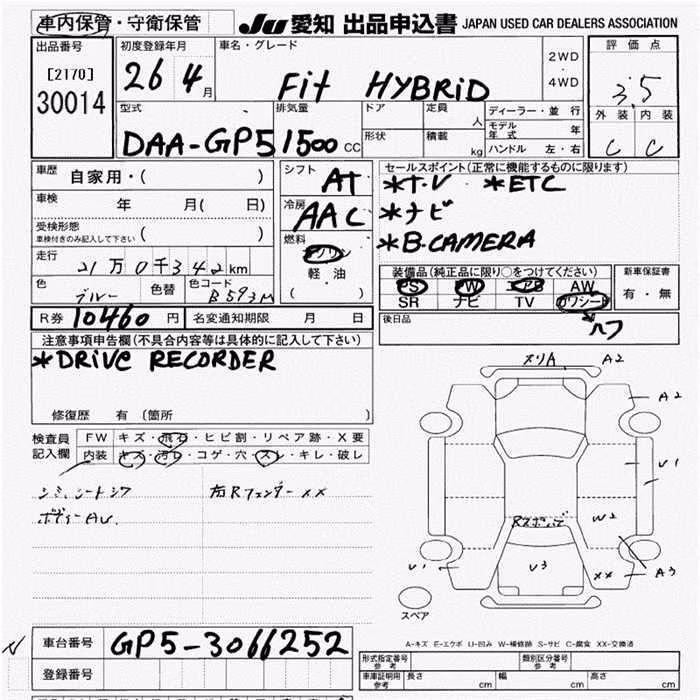 車内保管・守衛保管 JU 愛知 出品申込書 JAPAN USED CAR DEALERS ASSOCIATION
出品番号 [2170] 30014
初度登録年月 26 4月
車名・グレード Fit HYBRID 2WD・4WD
評価点 3.5
外装 内装 C C
型式 DAA-GP5
排気量 1500 CC
ドア 定員 人
形状 積載 kg
ディーラー・並行
モデル年式 年
ハンドル 左・右
車歴 自家用・( )
車検 年 月( 日)
受検形態 車検付きのみ記入して下さい ( )
走行 21万0千342km
色 ブルー 色替 色コード B593M
シフト AT
冷房 AAC
燃料 ガソリン 軽油 ( )
セールスポイント(正常に機能するものに限ります)
*T.V *ETC
*ナビ
*B.CAMERA
装備品(純正品に限り○をつけてください)
PS PW エアB AW
SR ナビ TV カワシート
ハフ
新車保証書 有・無
後日品
R券 10460円 名変通知期限 月 日
注意事項申告欄(不具合内容等は具体的に記入して下さい)
*DRIVE RECORDER
修復歴 有 (箇所
検査員記入欄
FW キズ・飛石・ヒビ割・リペア跡・X要
内装 キズ・汚レ・コゲ・穴・スレ・キレ・破レ
シミ、シートシワ 右Rフェンダー XX
ボディーAU.
メリA A2
A2
U1
W2
U1
U3
XX
A3
スペア
A-キズ E-エクボ U-凹み W-補修跡 S-サビ C-腐食 XX-交換済
車台番号 GP5-3066252
登録番号
形式指定番号 参考 類別区分番号 参考
車庫証明用 参考 長さ cm 幅 cm 高さ cm